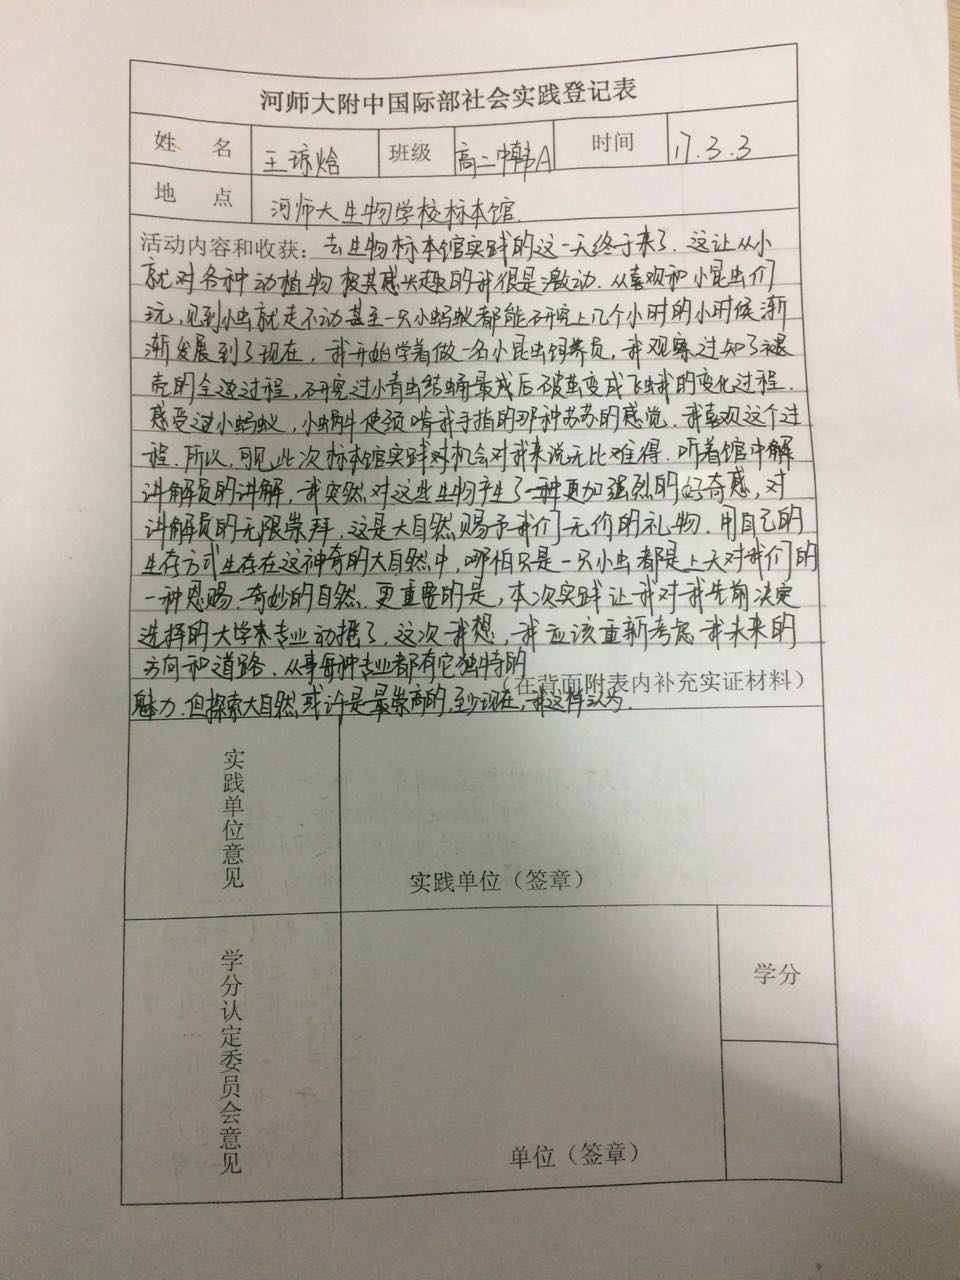 河师大附中国际部社会实践登记表
姓 名 王琼焓 班级 高二中韩A 时间 17.3.3
地 点 河师大生物学校标本馆.
活动内容和收获：去生物标本馆实践的这一天终于来了.这让从小
就对各种动植物极其感兴趣的我很是激动.从喜欢和小昆虫们
玩,见到小虫就走不动甚至一只小蚂蚁都能研究上几个小时的小时候渐
渐发展到了现在,我开始学着做一名小昆虫饲养员,我观察过知了褪
壳的全过程,研究过小青虫结蛹最或后破茧变成飞蛾的变化过程.
感受过小蚂蚁,小蜗牛使颈啃我手指的那种苏苏的感觉.我喜欢这个过
程.所以,可见此次标本馆实践对机会对我来说无比难得.听着馆中解
讲解员的讲解,我突然对这些生物产生了一种更加强烈的好奇感,对
讲解员的无限崇拜.这是大自然赐予我们无价的礼物.用自己的
生存方式生存在这神奇的大自然中,哪怕只是一只小虫都是上天对我们的
一种恩赐.奇妙的自然.更重要的是,本次实践让我对我先前决定
选择的大学专业动摇了.这次我想,我应该重新考虑我未来的
方向和道路.从事每种专业都有它独特的
（在背面附表内补充实证材料）
魅力.但探索大自然,或许是最崇高的,至少现在,我这样认为.
实践单位意见
实践单位（签章）
学分认定委员会意见
学分
单位（签章）